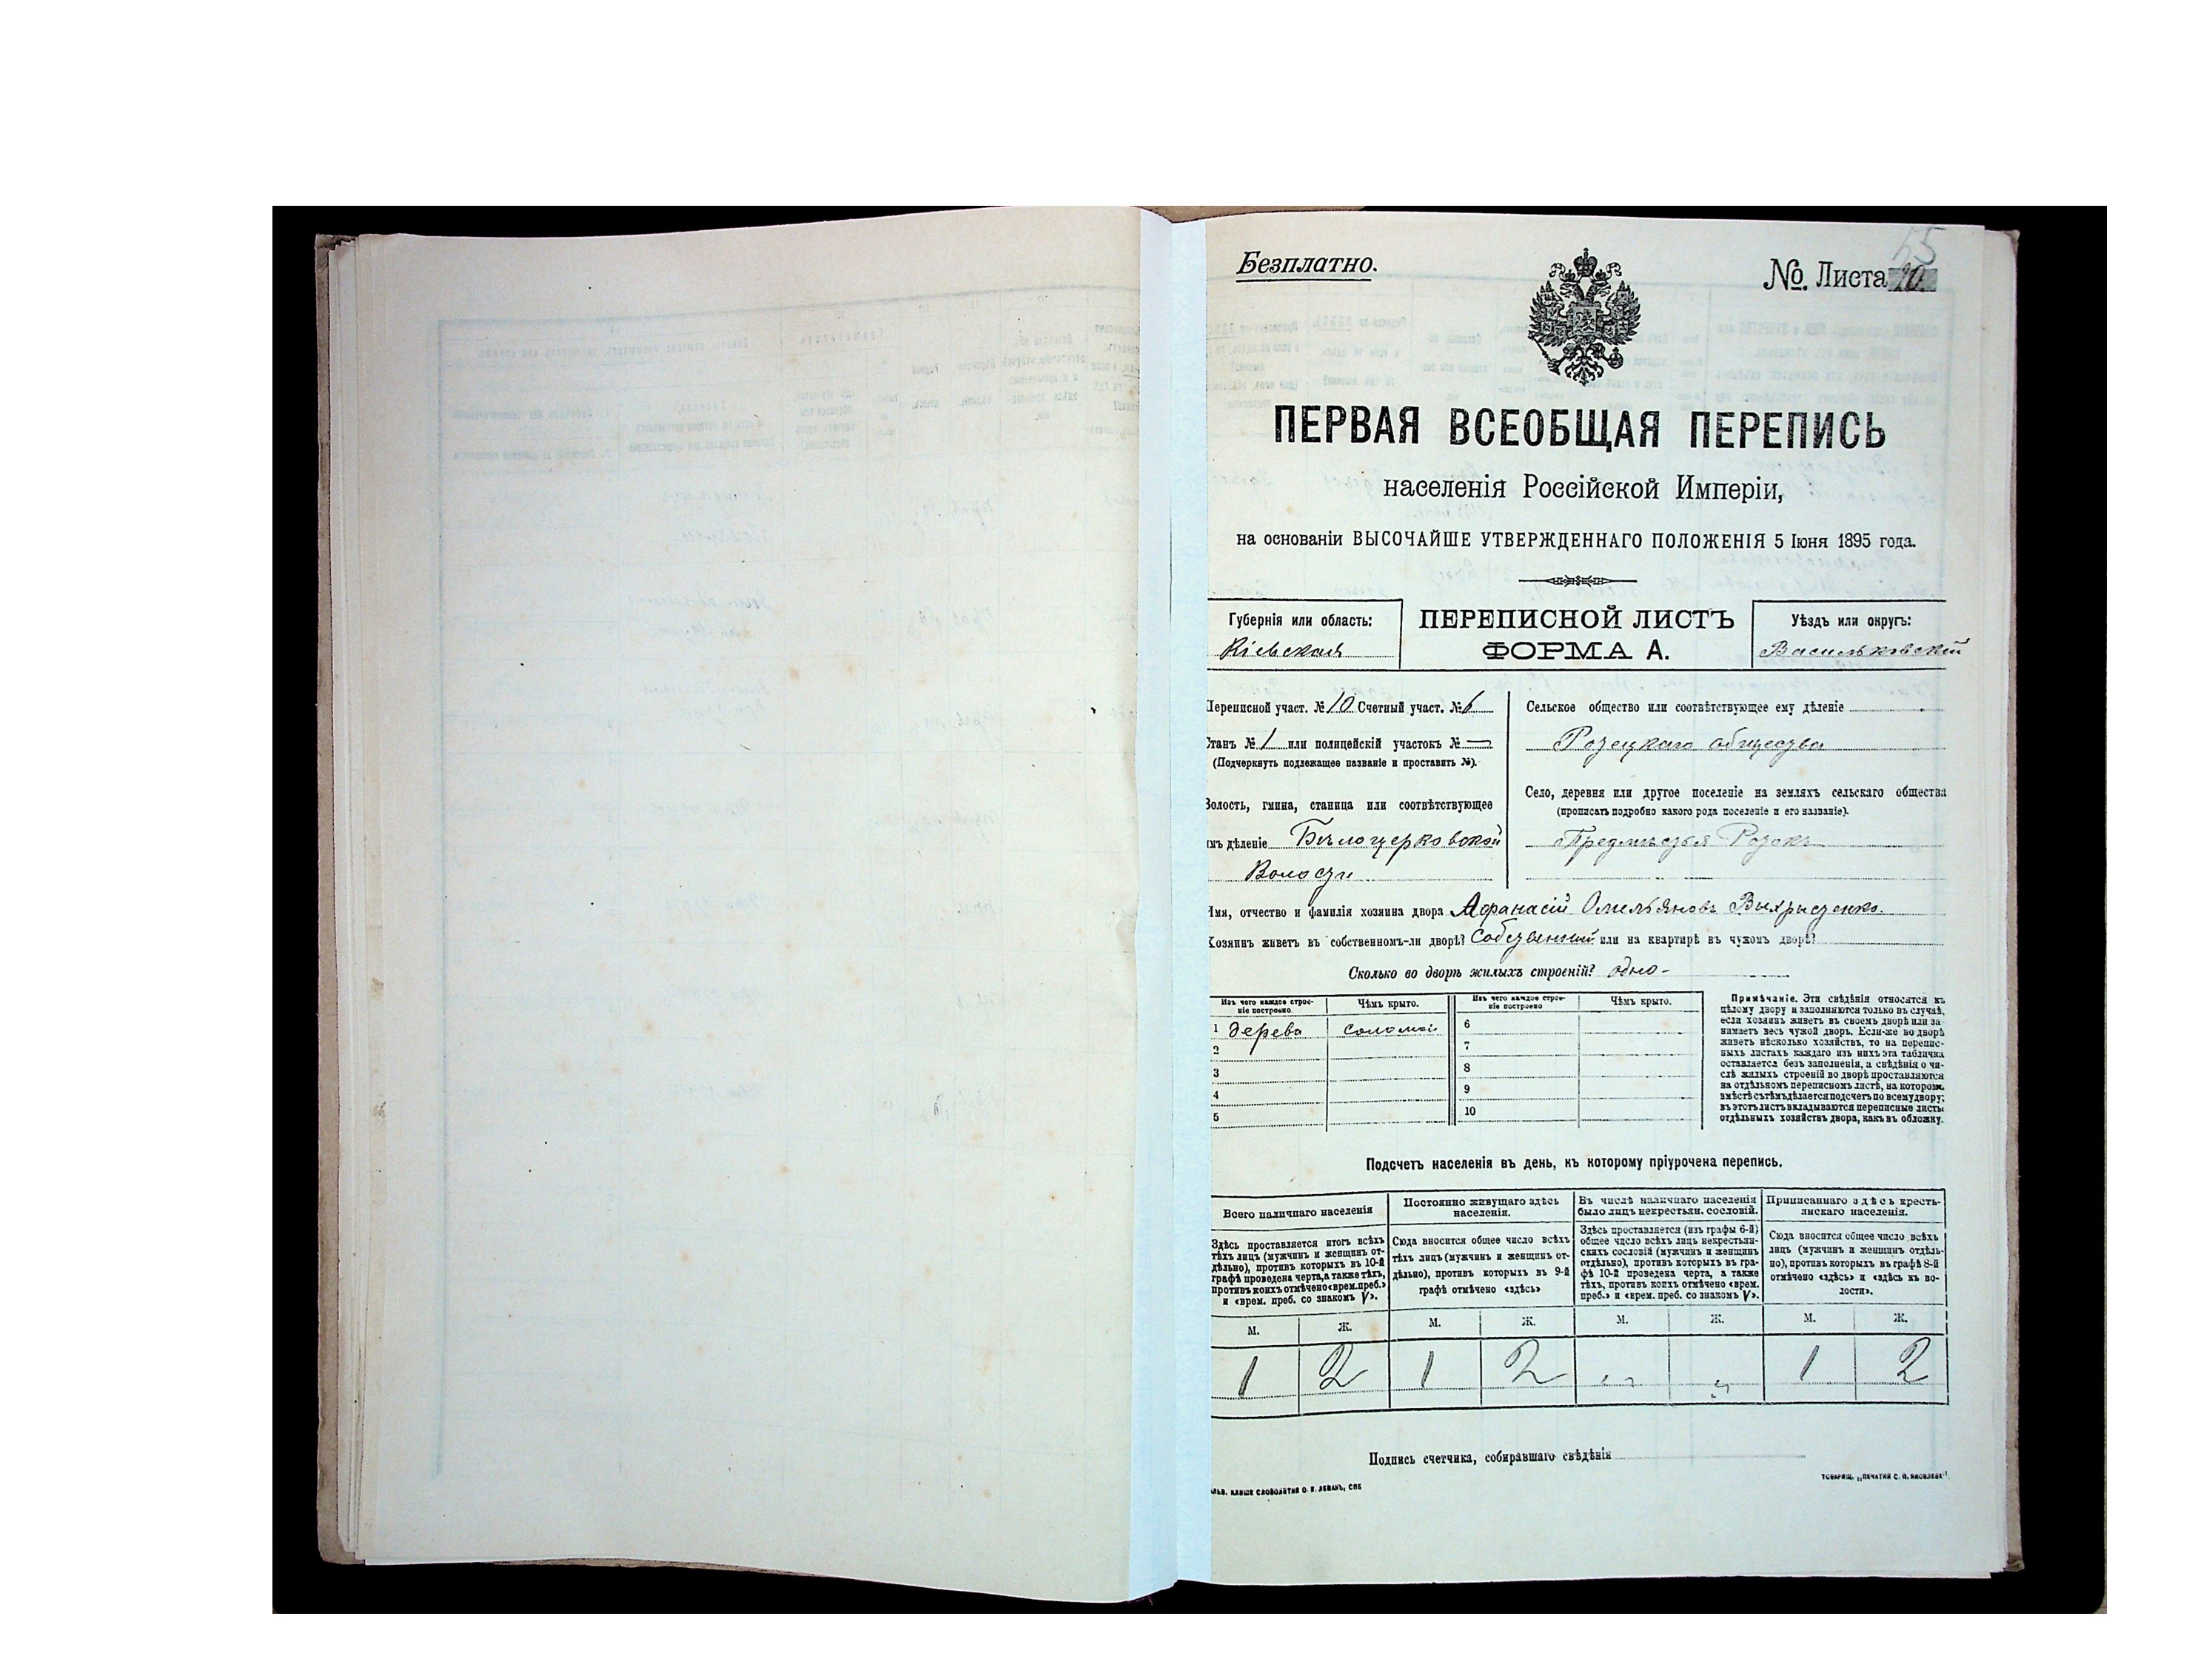 Безплатно.
55
№. Листа 20.
ПЕРВАЯ ВСЕОБЩАЯ ПЕРЕПИСЬ
населенія Россійской Имперіи,
на основаніи ВЫСОЧАЙШЕ УТВЕРЖДЕННАГО ПОЛОЖЕНІЯ 5 Іюня 1895 года.
Губернія или область:
Кіевская
ПЕРЕПИСНОЙ ЛИСТЪ
ФОРМА А.
Уѣздъ или округъ:
Васильковскій
Переписной участ. № 10 Счетный участ. № 6
Станъ № 1 или полицейскій участокъ № —
(Подчеркнуть подлежащее названіе и проставить №).
Волость, гмина, станица или соотвѣтствующее
имъ дѣленіе Бѣлоцерковской
Волости
Сельское общество или соотвѣтствующее ему дѣленіе
общества
Село, деревня или другое поселеніе на земляхъ сельскаго общества
(прописать подробно какого рода поселеніе и его названіе).
Предмѣстья
Имя, отчество и фамилія хозяина двора Афанасій Омельяновъ
Хозяинъ живетъ въ собственномъ-ли дворѣ? Собственный или на квартирѣ въ чужомъ дворѣ?
Сколько во дворѣ жилыхъ строеній? одно -
Изъ чего каждое строеніе построено Чѣмъ крыто. Изъ чего каждое строеніе построено Чѣмъ крыто.
1 дерева соломой 6
2 7
3 8
4 9
5 10
Примѣчаніе. Эти свѣдѣнія относятся къ
цѣлому двору и заполняются только въ случаѣ,
если хозяинъ живетъ въ своемъ дворѣ или за-
нимаетъ весь чужой дворъ. Если-же во дворѣ
живетъ нѣсколько хозяйствъ, то на перепис-
ныхъ листахъ каждаго изъ нихъ эта табличка
оставляется безъ заполненія, а свѣдѣнія о чи-
слѣ жилыхъ строеній во дворѣ проставляются
на отдѣльномъ переписномъ листѣ, на которомъ
вмѣстѣ съ тѣмъ дѣлается подсчетъ по всему двору;
въ этотъ листъ вкладываются переписные листы
отдѣльныхъ хозяйствъ двора, какъ въ обложку.
Подсчетъ населенія въ день, къ которому пріурочена перепись.
Всего наличнаго населенія
Здѣсь проставляется итогъ всѣхъ
тѣхъ лицъ (мужчинъ и женщинъ от-
дѣльно), противъ которыхъ въ 10-й
графѣ проведена черта, а также тѣхъ,
противъ коихъ отмѣчено «врем. преб.»
и «врем. преб. со знакомъ V».
Постоянно живущаго здѣсь
населенія.
Сюда вносится общее число всѣхъ
тѣхъ лицъ (мужчинъ и женщинъ от-
дѣльно), противъ которыхъ въ 9-й
графѣ отмѣчено «здѣсь»
Въ числѣ наличнаго населенія
было лицъ некрестьян. сословій.
Здѣсь проставляется (изъ графы 6-й)
общее число всѣхъ лицъ некрестьян-
скихъ сословій (мужчинъ и женщинъ
отдѣльно), противъ которыхъ въ гра-
фѣ 10-й проведена черта, а также
тѣхъ, противъ коихъ отмѣчено «врем.
преб.» и «врем. преб. со знакомъ V».
Приписаннаго здѣсь кресть-
янскаго населенія.
Сюда вносится общее число всѣхъ
лицъ (мужчинъ и женщинъ отдѣль-
но), противъ которыхъ въ графѣ 8-й
отмѣчено «здѣсь» и «здѣсь къ во-
лости».
М. Ж. М. Ж. М. Ж. М. Ж.
1 2 1 2 „ „ 1 2
Подпись счетчика, собиравшаго свѣдѣнія
КЛИШЕ СЛОВОЛИТНИ О. И. ЛЕМАНЪ, СПБ
ТОВАРИЩ. „ПЕЧАТНЯ С. П. ЯКОВЛЕВА“.